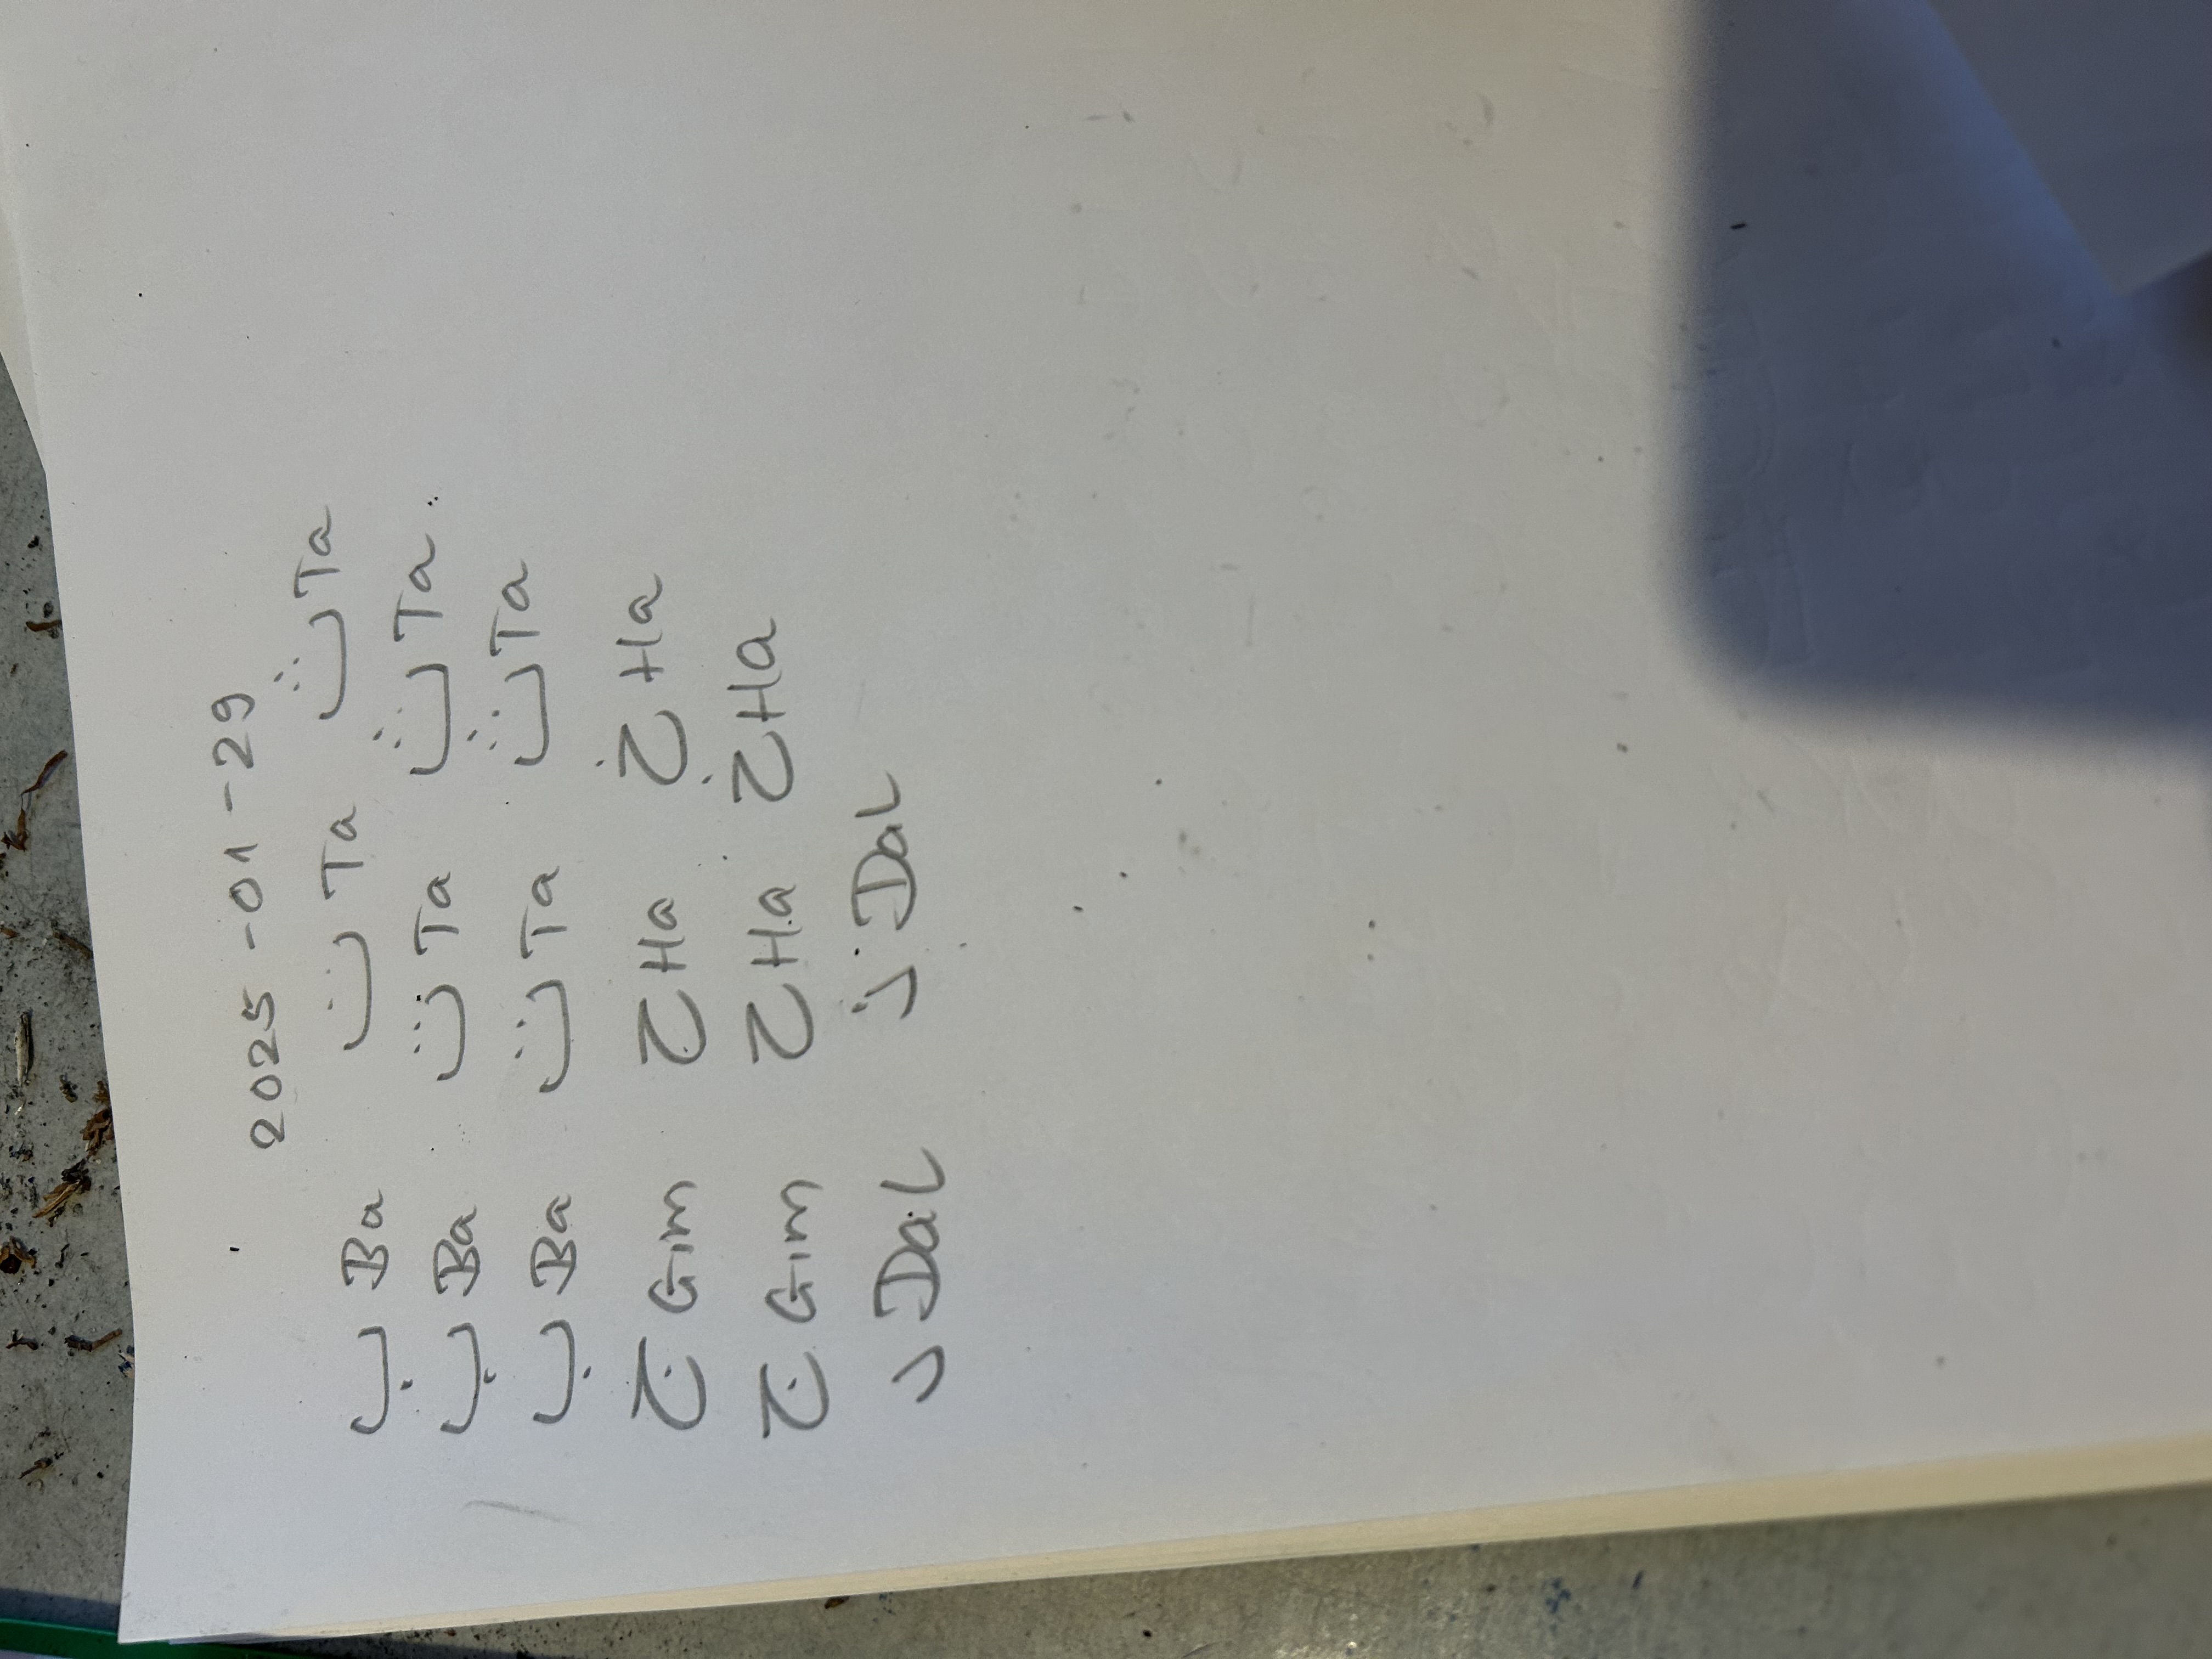 2025-01-29
ب Ba ت Ta ث Ta
ب Ba ت Ta ث Ta
ب Ba ت Ta ث Ta
ج Gim ح Ha خ Ha
ج Gim ح Ha خ Ha
د Dal ذ Dal